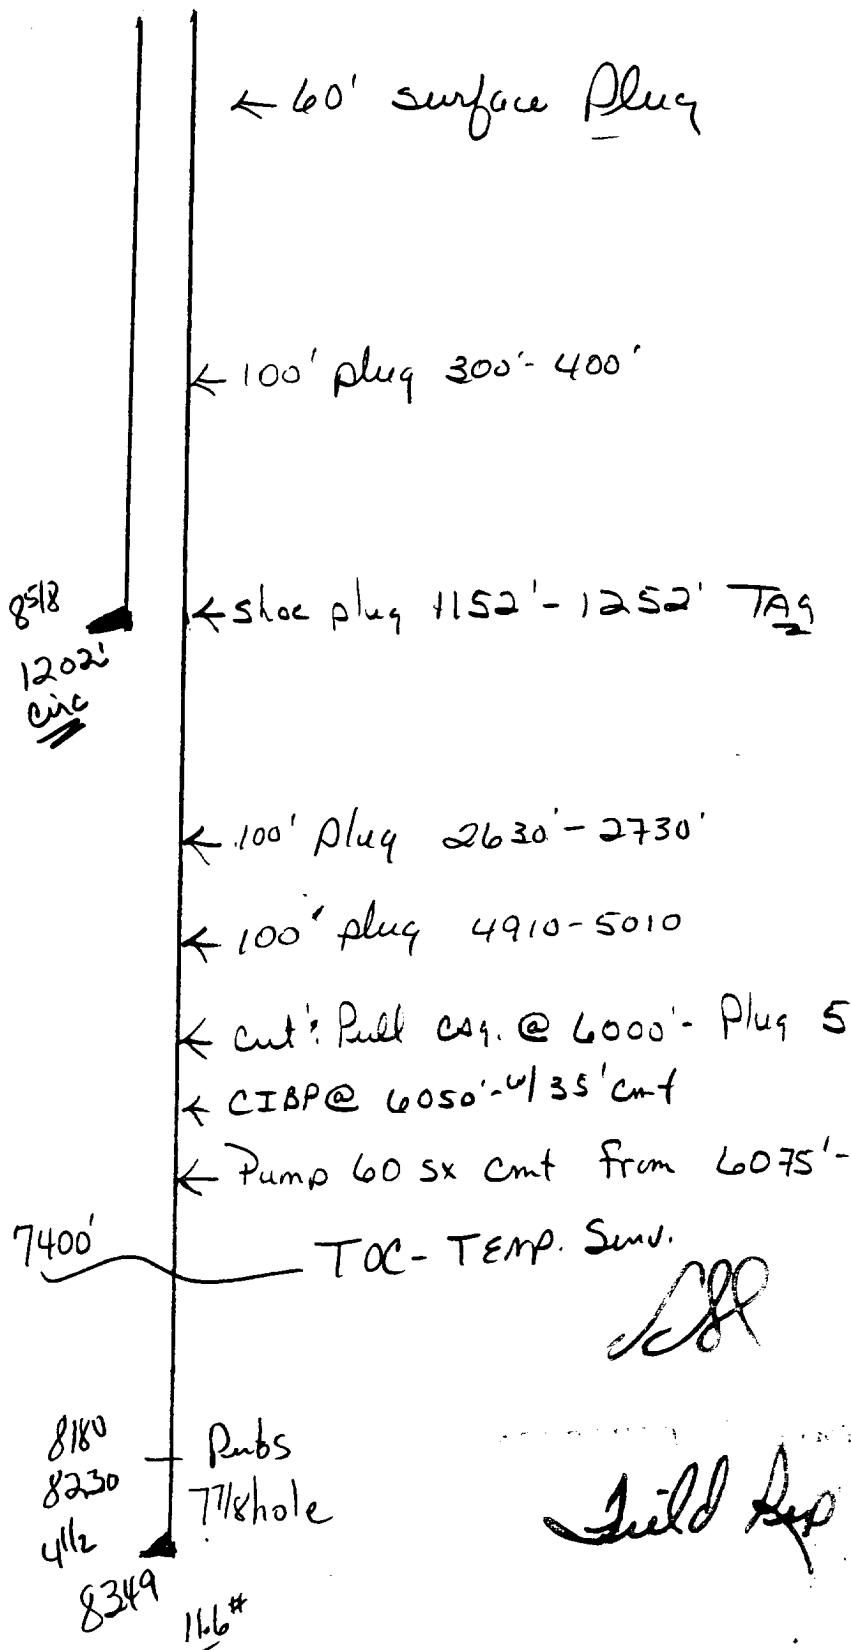 ← 60' surface Plug
← 100' plug 300'- 400'
8 5/8
← shoe plug 1152'- 1252' TAG
1202'
circ
← 100' Plug 2630'- 2730'
← 100' plug 4910-5010
← Cut & Pull csg. @ 6000'- Plug 5
← CIBP @ 6050'- w/ 35' cmt
← Pump 60 sx cmt from 6075'-
7400'
TOC - TEMP. Surv.
8180
Perfs
8230
7 7/8 hole
4 1/2
8349
11.6#
Field Rep